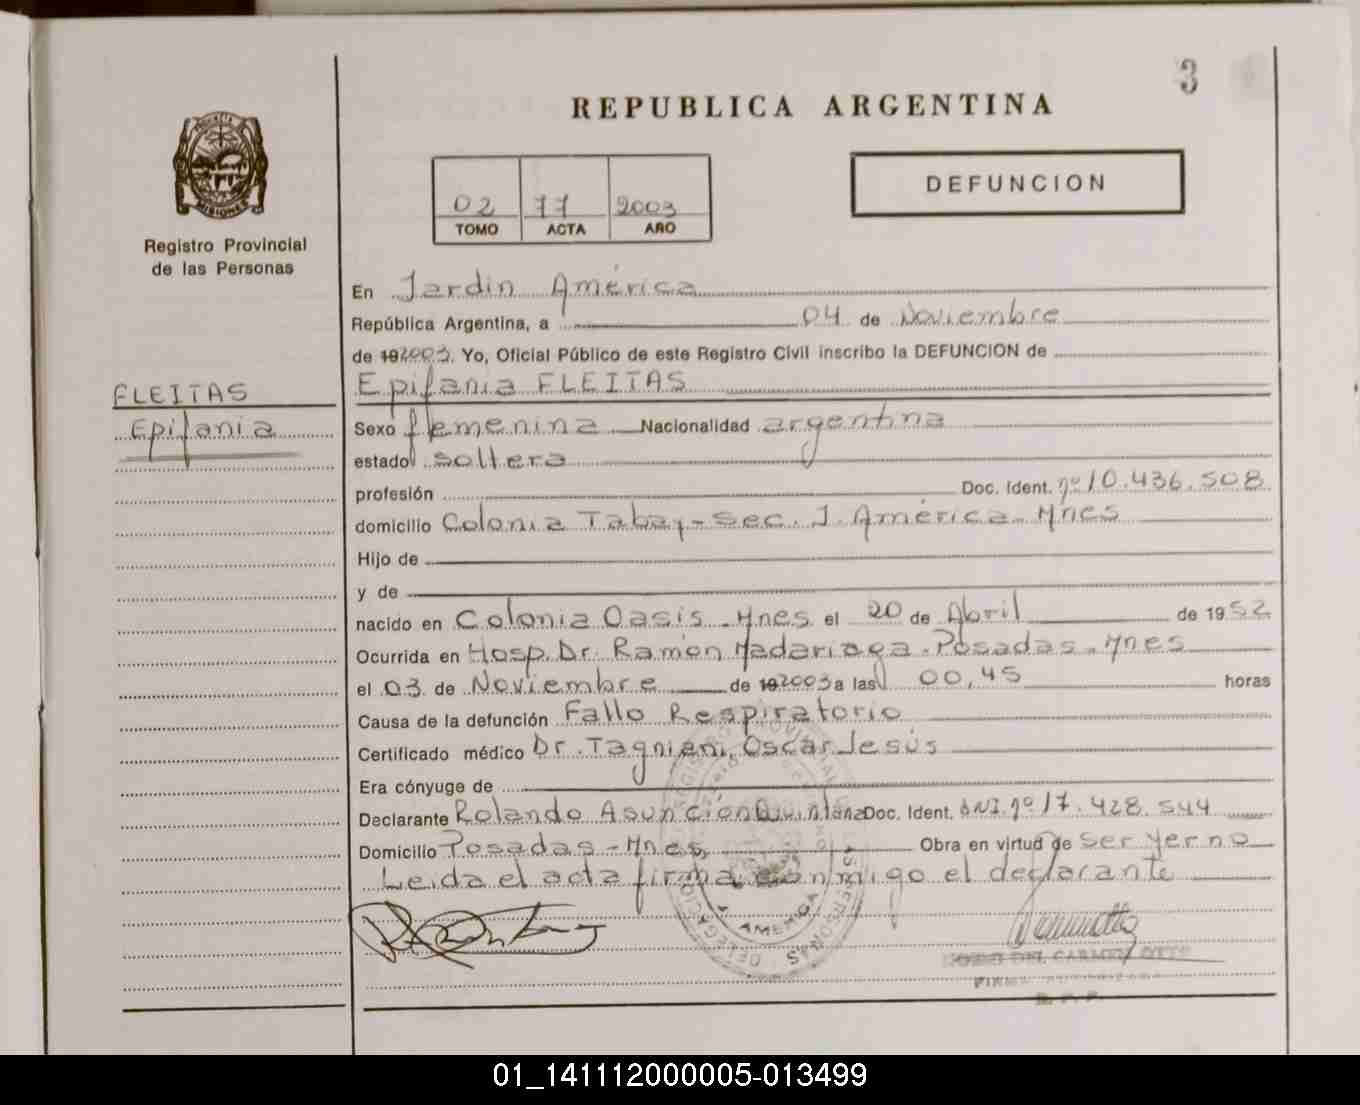 3
REPUBLICA ARGENTINA
MISIONES
Registro Provincial
de las Personas
02 77 2003
TOMO ACTA AÑO
DEFUNCION
En Jardin América
República Argentina, a 04 de Noviembre
de 192003. Yo, Oficial Público de este Registro Civil inscribo la DEFUNCION de
FLEITAS
Epifania
Epifania FLEITAS
Sexo femenina Nacionalidad argentina
estado soltera
profesión Doc. Ident. nº 10.436.508
domicilio Colonia Tabay - Sec. J. América - Mnes
Hijo de
y de
nacido en Colonia Oasis - Mnes el 20 de Abril de 1952
Ocurrida en Hosp. Dr. Ramón Madariaga - Posadas - Mnes
el 03 de Noviembre de 192003 a las 00,45 horas
Causa de la defunción Fallo Respiratorio
Certificado médico Dr. Tagniani, Oscar Jesús
Era cónyuge de
Declarante Rolando Asunción Quintana Doc. Ident. DNI. nº 17.428.544
Domicilio Posadas - Mnes, Obra en virtud de ser yerno
Leida el acta firma conmigo el declarante
AMERICA
DEL CARMEN OTTO
01_141112000005-013499